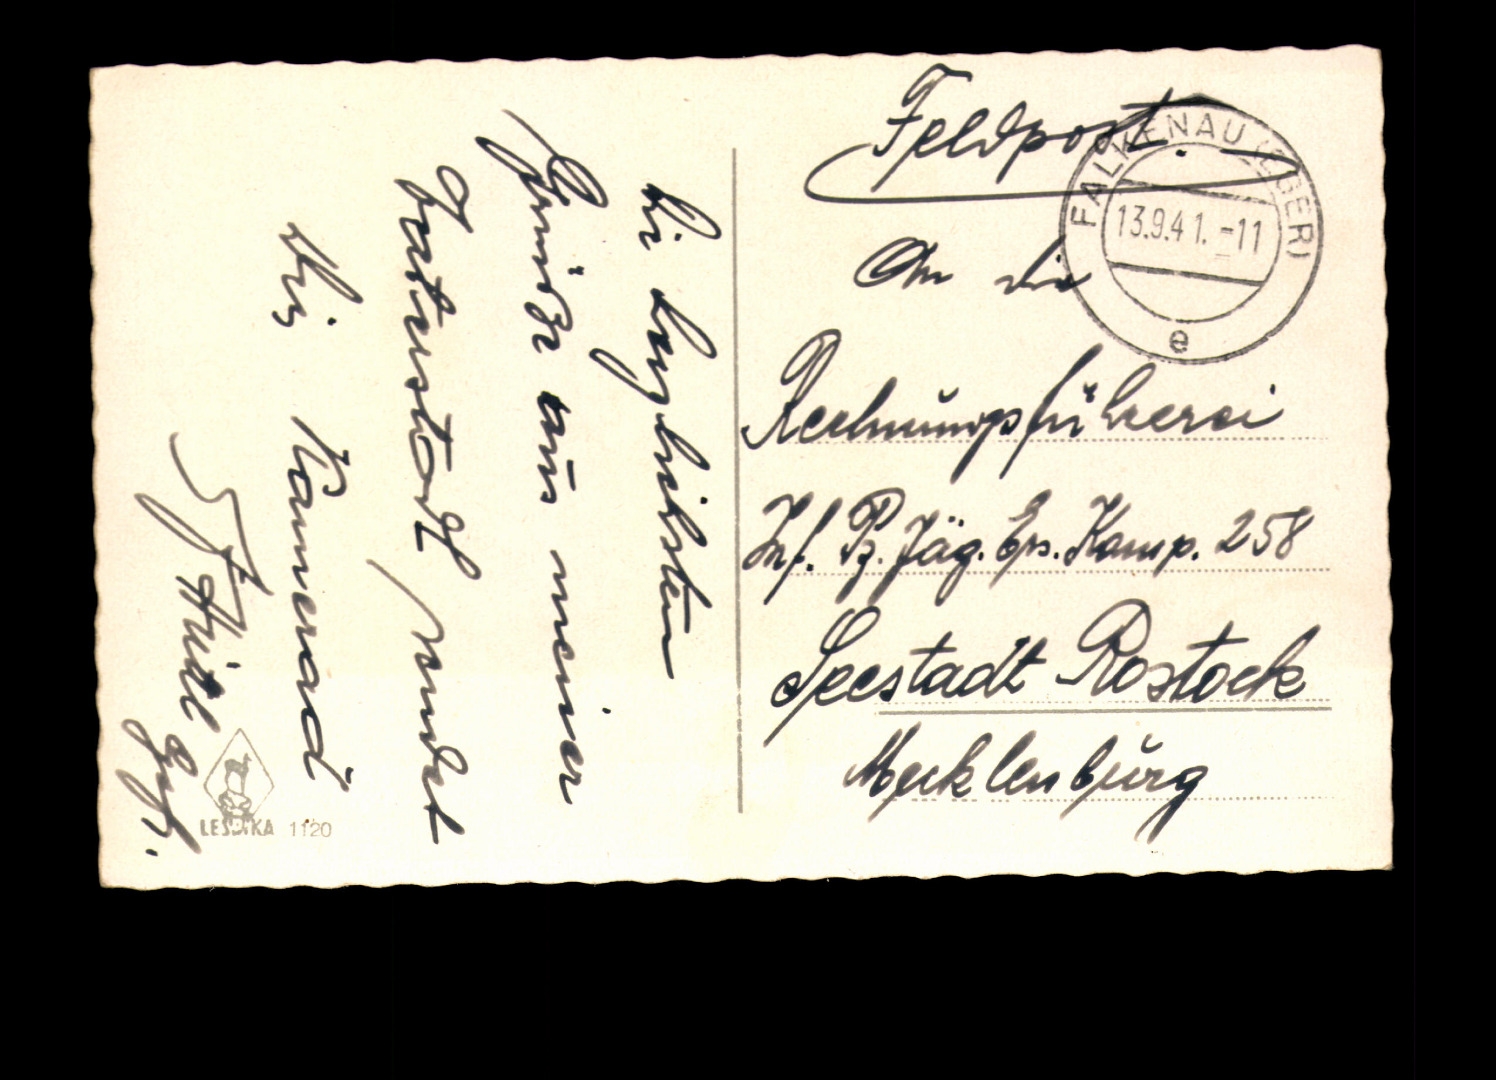 Die herzlichsten
Grüße aus meiner
Vaterstadt sendet
Kamerad
Gefr.
LESDKA 1120
Feldpost.
FALKENAU (EGER)
13.9.41.-11
e
An die
Rechnungsführerei
Inf. Pz. Jäg. Ers. Komp. 258
Seestadt Rostock
Mecklenburg